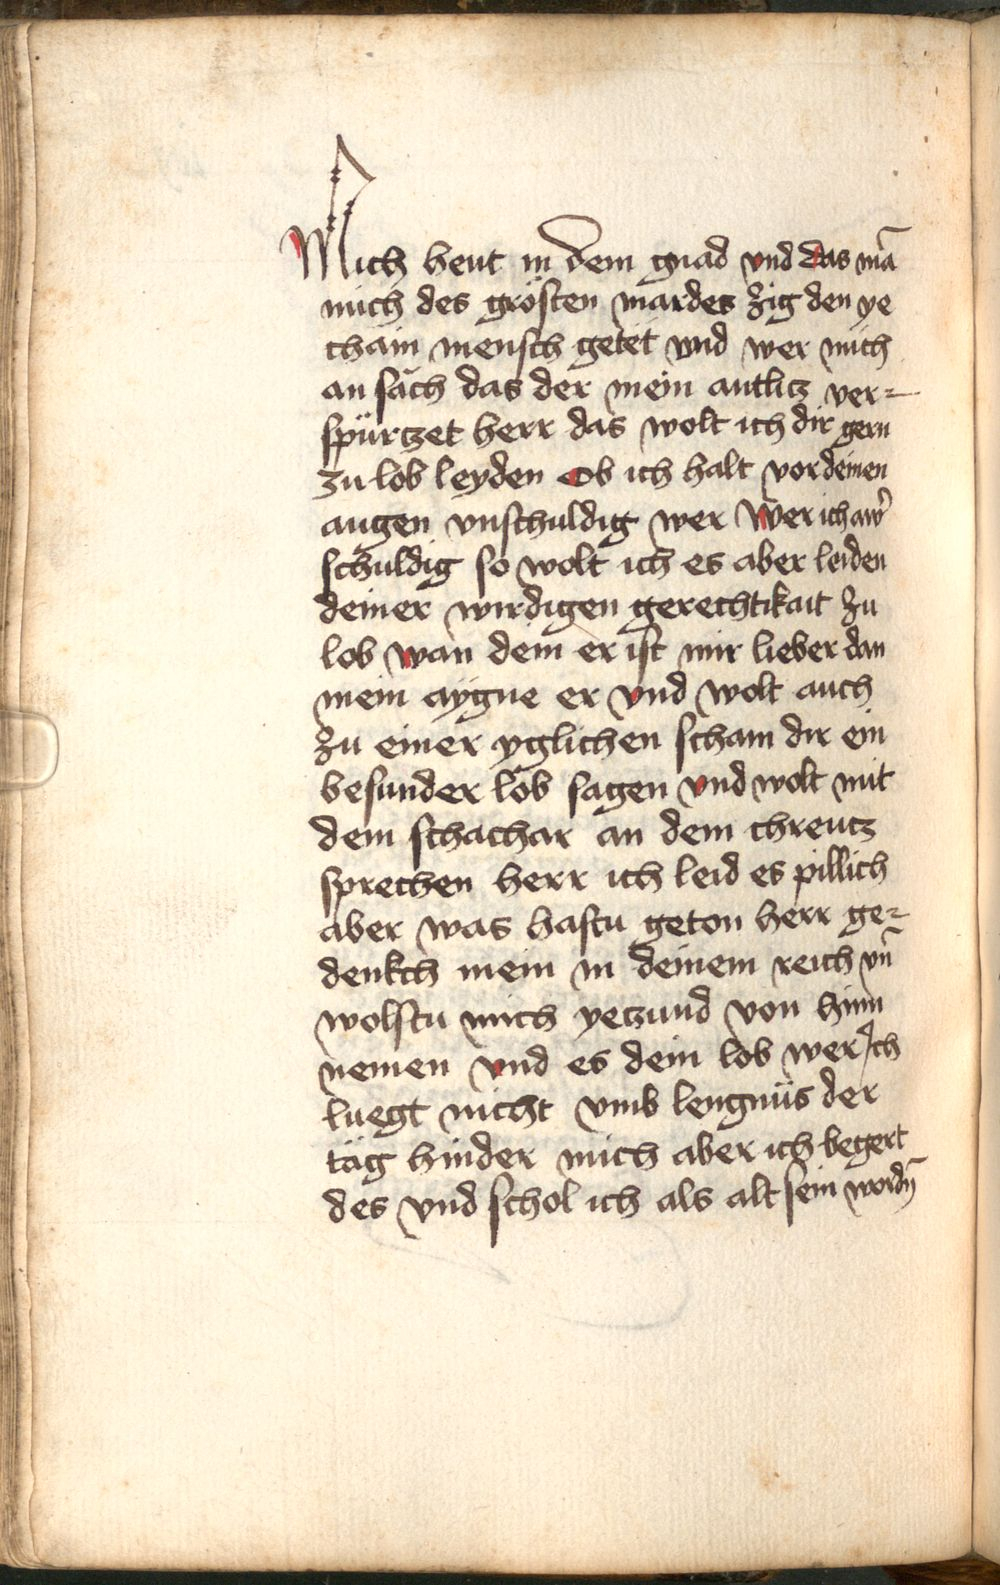 Mich heut in dem gnad vnd das mā
mich des grösten mardes zig den ye
chain mensch getet vnd wer mich
an säch das der mein antlitz ver-
spürtzet herr das wolt ich dir gern
zu lob leyden Ob ich halt vor deinen
augen vnschuldig wer Wer ich aw̄
schuldig so wolt ich es aber leiden
deiner wirdigen gerechtikait zu
lob wan dein er ist mir lieber dan
mein aygne er vnd wolt auch
zu einer yglichen scham dir ein
besunder lob sagen vnd wolt mit
dem schachar an dem chreutz
sprechen herr ich leid es pillich
aber was hastu geton herr ge-
denkch mein in deinem reich vn̄
wolstu mich yetzund von hinn
nemen vnd es dein lob wer Ich
luegt nicht vmb lengnüs der
täg hinder mich aber ich begert
des vnd schol ich als alt sein wordn̄